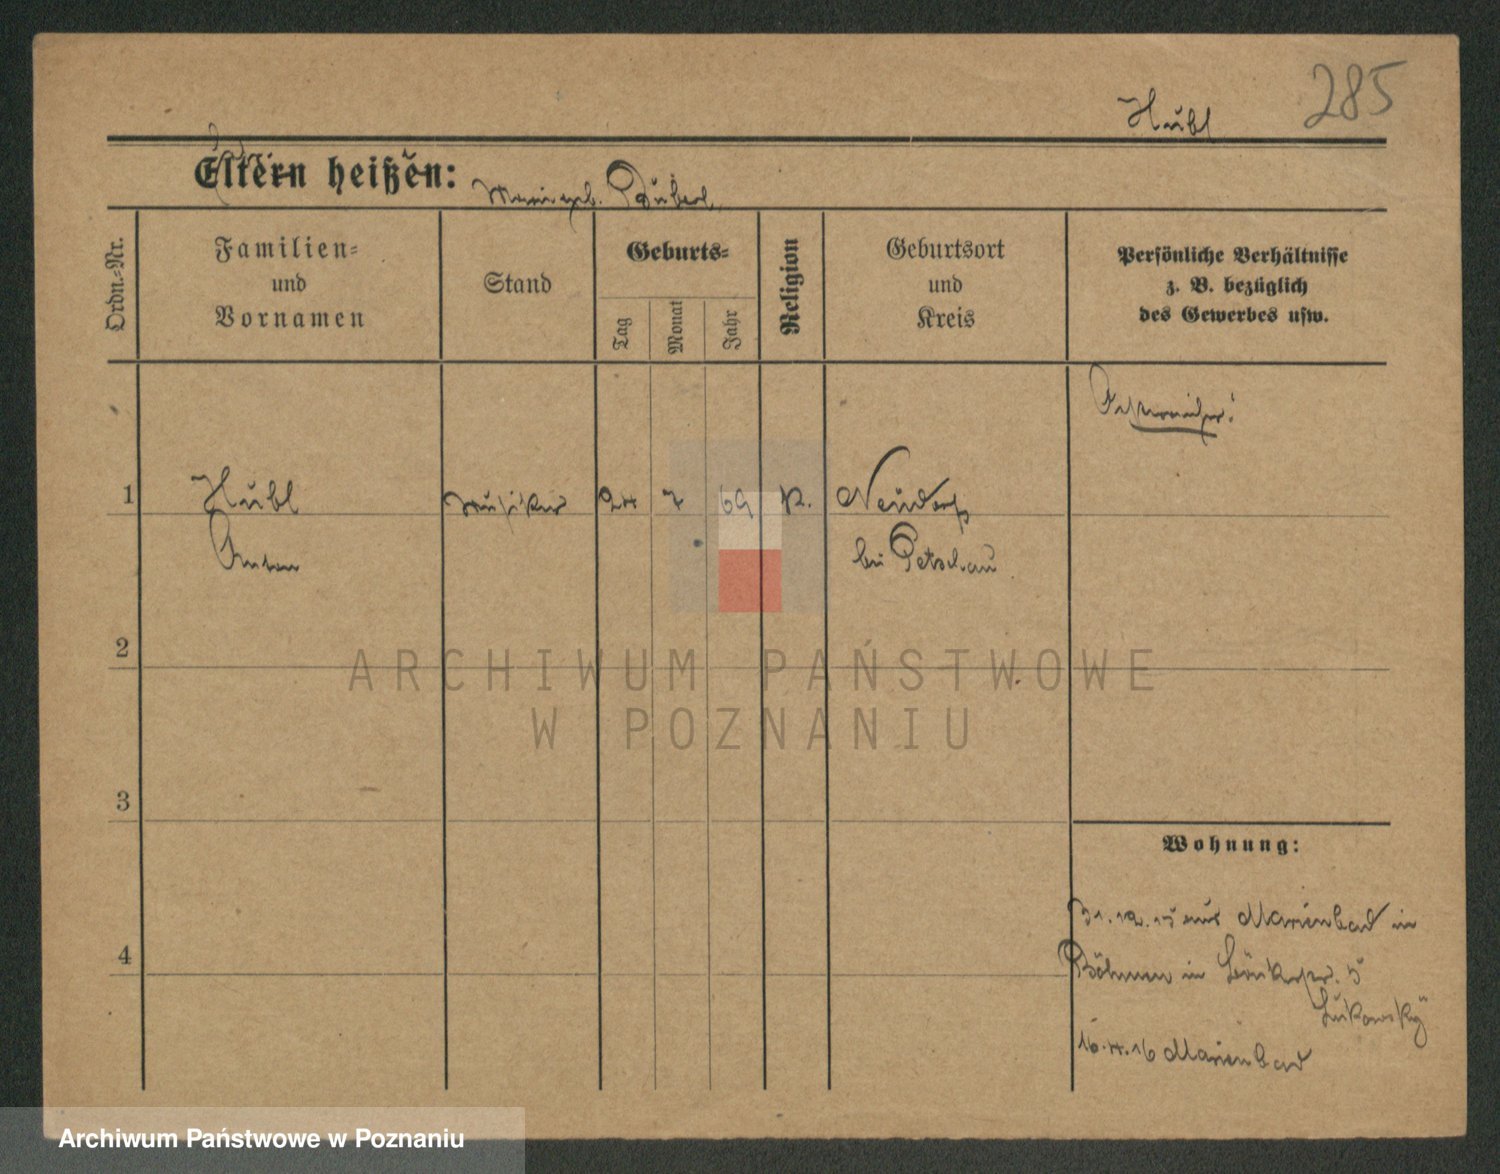 285
Hübl
Eltern heißen:
geb.
Ordn.-Nr.
Familien-
und
Vornamen
Stand
Geburts-
Tag
Monat
Jahr
Religion
Geburtsort
und
Kreis
Persönliche Verhältnisse
z. B. bezüglich
des Gewerbes usw.
Österreicher!
1
Hübl
Musiker
24
7
69
K.
Neudorf
Anton
bei Petschau
2
ARCHIWUM PAŃSTWOWE
W POZNANIU
3
Wohnung:
31.12.15 aus Marienbad in
4
Böhmen in 5
Lukowsky
16.4.16 Marienbad
Archiwum Państwowe w Poznaniu